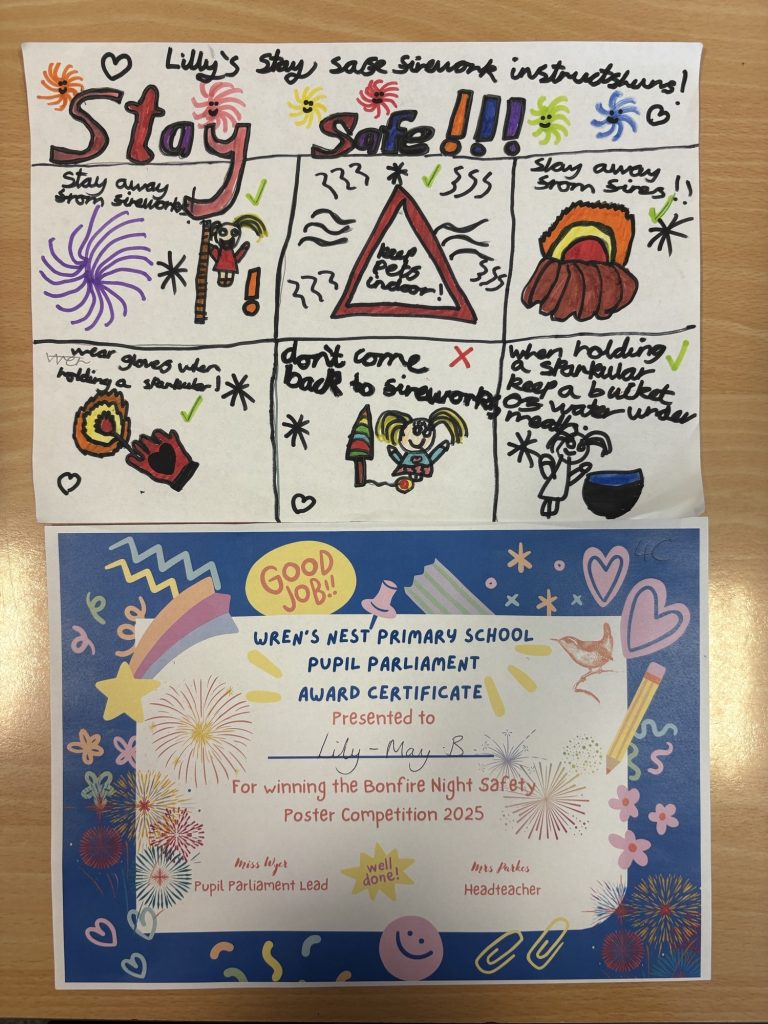 Lilly's Stay safe firework instructshuns!
Stay Safe!!!
Stay away
from fireworks!
keep
pets
indoor!
Stay away
from fires!!
wear gloves when
holding a sparkular!
don't come
back to fireworks
when holding
a sparkular
keep a bucket
of water under
neath.
4C
GOOD
JOB!!
WREN'S NEST PRIMARY SCHOOL
PUPIL PARLIAMENT
AWARD CERTIFICATE
Presented to
Lily-May B
For winning the Bonfire Night Safety
Poster Competition 2025
Miss Wyer
Pupil Parliament Lead
well
done!
Mrs Parkes
Headteacher